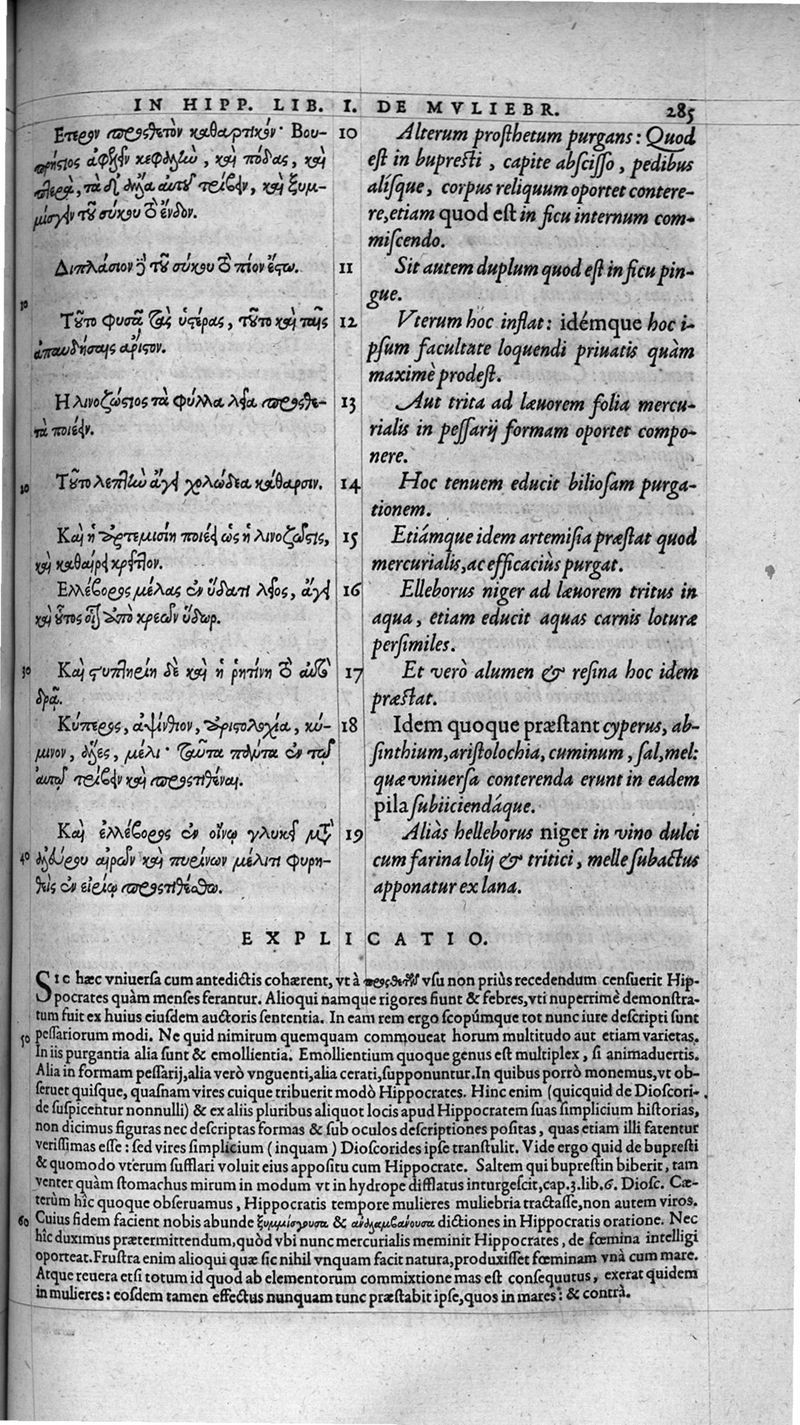 IN HIPP. LIB. I. DE MVLIEBR. 285
Ἕτερον προσθετὸν καθαρτικόν· Βου-
πρήστιος ἀφελεῖν κεφαλὴν, καὶ πόδας, καὶ
πτερὰ, τὰ δὲ ἄλλα αὐτοῦ τρίβειν, καὶ ξυμ-
μίσγειν τοῦ σύκου τὸ ἔνδον.
Διπλάσιον δὲ τοῦ σύκου τὸ πῖον ἔστω.
10
Τοῦτο φυσᾶ τὰς ὑστέρας, τοῦτο καὶ ταῖς
ἀπαυδήσαις ἄριστον.
Ἢ λινοζώστιος τὰ φύλλα λεῖα προσθε-
τὰ ποιέειν.
20
Τοῦτο λεπτὴν ἄγει χολώδεα κάθαρσιν.
Καὶ ἡ ἀρτεμισίη ποιέει ὡς ἡ λινοζῶστις,
καὶ καθαίρει κρέσσον.
Ἐλλέβορος μέλας ἐν ὕδατι λεῖος, ἄγει
καὶ οὗτος οἷον ἀπὸ κρεῶν ὕδωρ.
30
Καὶ στυπτηρίη δὲ καὶ ἡ ῥητίνη τὸ αὐτὸ
δρᾷ.
Κύπερος, ἀψίνθιον, ἀριστολοχία, κύ-
μινον, ἅλες, μέλι· ταῦτα πάντα ἐν τῷ
αὐτῷ τρίβειν καὶ προστιθέναι.
Καὶ ἐλλέβορος ἐν οἴνῳ γλυκεῖ μετ'
40 ἀλεύρου αἰρῶν καὶ πυρίνων μέλιτι φυρη-
θεὶς ἐν εἰρίῳ προστιθέσθω.
10 Alterum prosthetum purgans: Quod
est in bupresti, capite abscisso, pedibus
alisque, corpus reliquum oportet contere-
re, etiam quod est in ficu internum com-
miscendo.
11 Sit autem duplum quod est in ficu pin-
gue.
12 Vterum hoc inflat: idémque hoc i-
psum facultate loquendi priuatis quàm
maximè prodest.
13 Aut trita ad læuorem folia mercu-
rialis in pessarij formam oportet compo-
nere.
14 Hoc tenuem educit biliosam purga-
tionem.
15 Etiámque idem artemisia præstat quod
mercurialis, ac efficaciùs purgat.
16 Elleborus niger ad læuorem tritus in
aqua, etiam educit aquas carnis loturæ
persimiles.
17 Et verò alumen & resina hoc idem
præstat.
18 Idem quoque præstant cyperus, ab-
sinthium, aristolochia, cuminum, sal, mel:
quæ vniuersa conterenda erunt in eadem
pila subiiciendáque.
19 Aliàs helleborus niger in vino dulci
cum farina lolij & tritici, melle subactus
apponatur ex lana.
EXPLICATIO.
SIC hæc vniuersa cum antedictis cohærent, vt à προσθετῶν vsu non priùs recedendum censuerit Hip-
pocrates quàm menses ferantur. Alioqui namque rigores fiunt & febres, vti nuperrimè demonstra-
tum fuit ex huius eiusdem auctoris sententia. In eam rem ergo scopúmque tot nunc iure descripti sunt
50 pessariorum modi. Ne quid nimirum quemquam commoueat horum multitudo aut etiam varietas.
In iis purgantia alia sunt & emollientia. Emollientium quoque genus est multiplex, si animaduertis.
Alia in formam pessarij, alia verò vnguenti, alia cerati, supponuntur. In quibus porrò monemus, vt ob-
seruet quisque, quasnam vires cuique tribuerit modò Hippocrates. Hinc enim (quicquid de Dioscori-
de suspicentur nonnulli) & ex aliis pluribus aliquot locis apud Hippocratem suas simplicium historias,
non dicimus figuras nec descriptas formas & sub oculos descriptiones positas, quas etiam illi fatentur
verissimas esse: sed vires simplicium (inquam) Dioscorides ipse transtulit. Vide ergo quid de bupresti
& quomodo vterum sufflari voluit eius appositu cum Hippocrate. Saltem qui buprestin biberit, tam
venter quàm stomachus mirum in modum vt in hydrope difflatus inturgescit, cap. 3. lib. 6. Diosc. Cæ-
terùm hîc quoque obseruamus, Hippocratis tempore mulieres muliebria tractasse, non autem viros.
60 Cuius fidem facient nobis abunde ξυμμίσγουσα & ἀναλαμβάνουσα dictiones in Hippocratis oratione. Nec
hîc duximus prætermittendum, quòd vbi nunc mercurialis meminit Hippocrates, de fœmina intelligi
oporteat. Frustra enim alioqui quæ sic nihil vnquam facit natura, produxisset fœminam vnà cum mare.
Atque reuera etsi totum id quod ab elementorum commixtione mas est consequutus, exerat quidem
in mulieres: eosdem tamen effectus nunquam tunc præstabit ipse, quos in mares: & contrà.